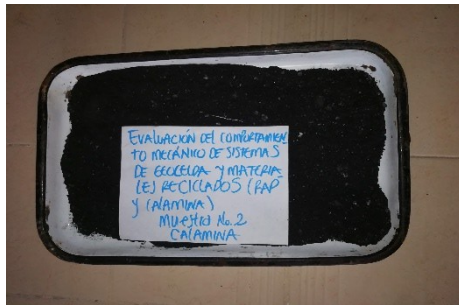 EVALUACIÓN DEL COMPORTAMIEN
TO MECÁNICO DE SISTEMAS
DE GEOCELDA Y MATERIA
LES RECICLADOS (RAP
Y CALAMINA)
MUESTRA No. 2
CALAMINA